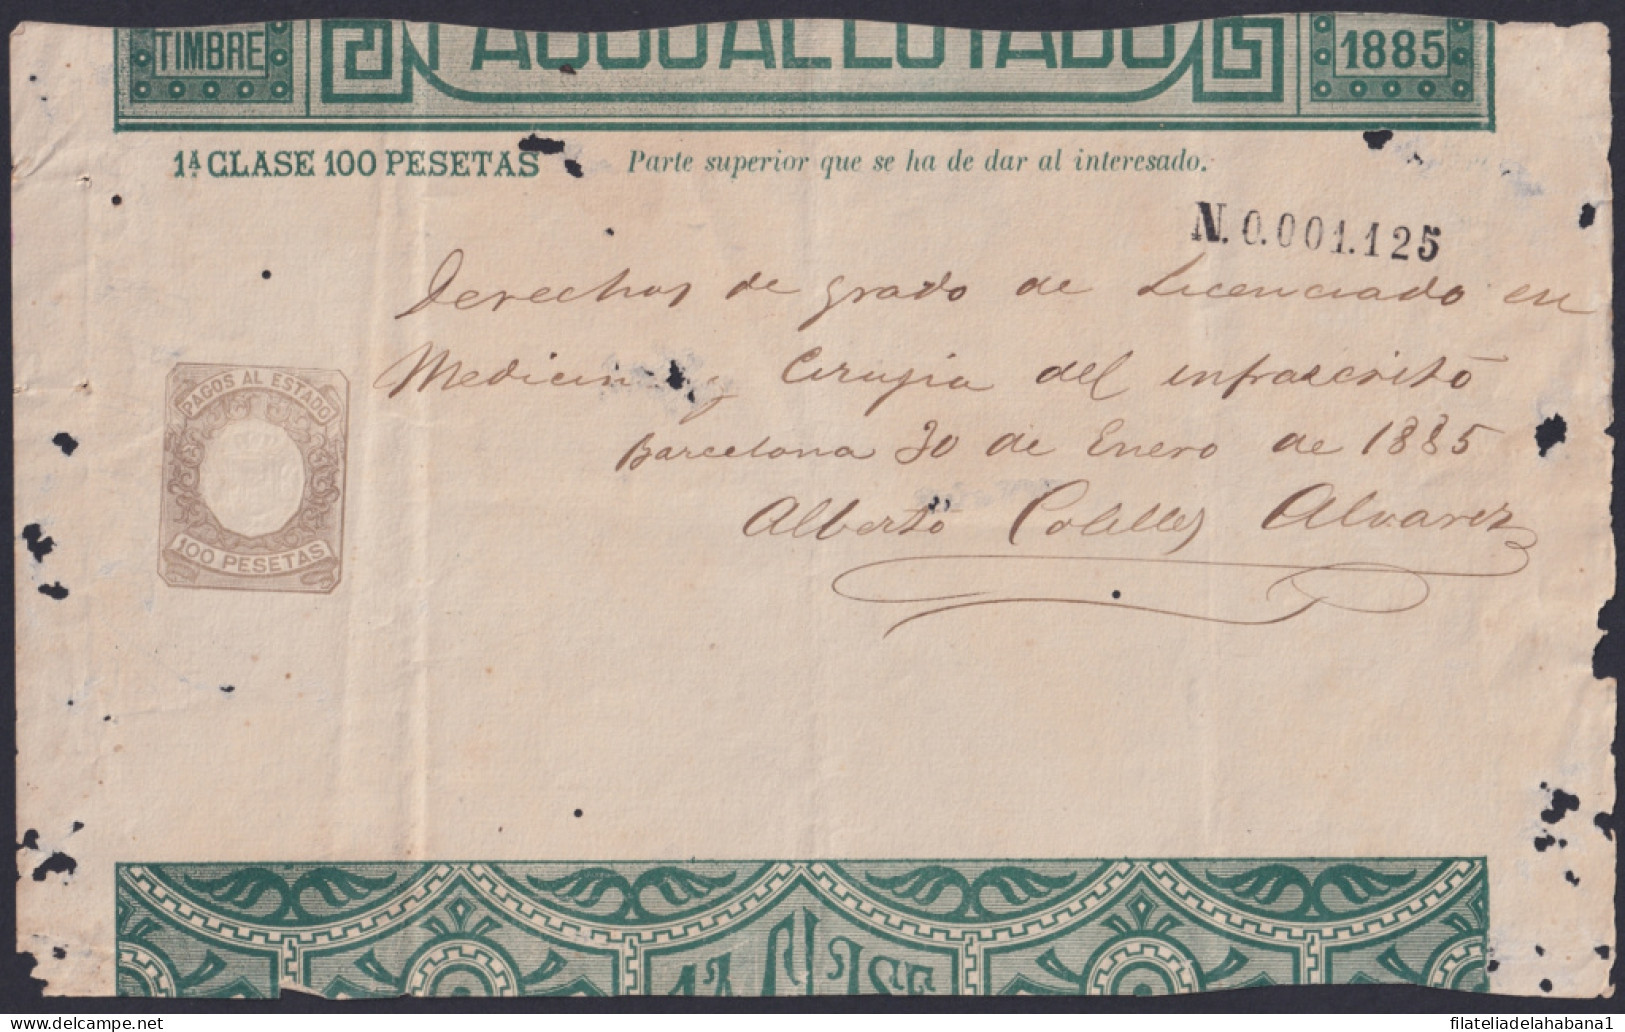 TIMBRE
PAGOS AL ESTADO
1885
1ª CLASE 100 PESETAS
Parte superior que se ha de dar al interesado.
N. 0.001.125
Derechos de grado de Licenciado en
Medicina y Cirujia del infraescrito
Barcelona 30 de Enero de 1885
Alberto Alvarez
PAGOS AL ESTADO
100 PESETAS
1ª CLASE
www.delcampe.net
filateliadelahabana1